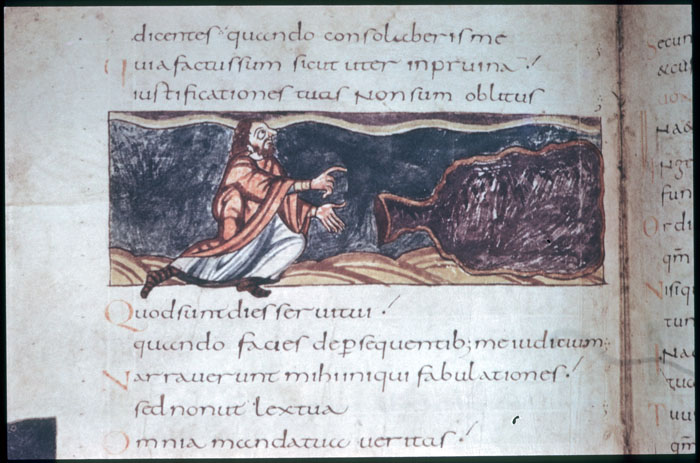 dicentes quando consolaberis me
Quia factus sum sicut uter in pruina
iustificationes tuas Non sum oblitus
Quod sunt dies serui tui
quando facies de persequentib; me iudicium
Narrauerunt mihi iniqui fabulationes
sed non ut lex tua
Omnia mandata tua ueritas
Secun
fun
Ordi
qm
Nisiq
tur
qm